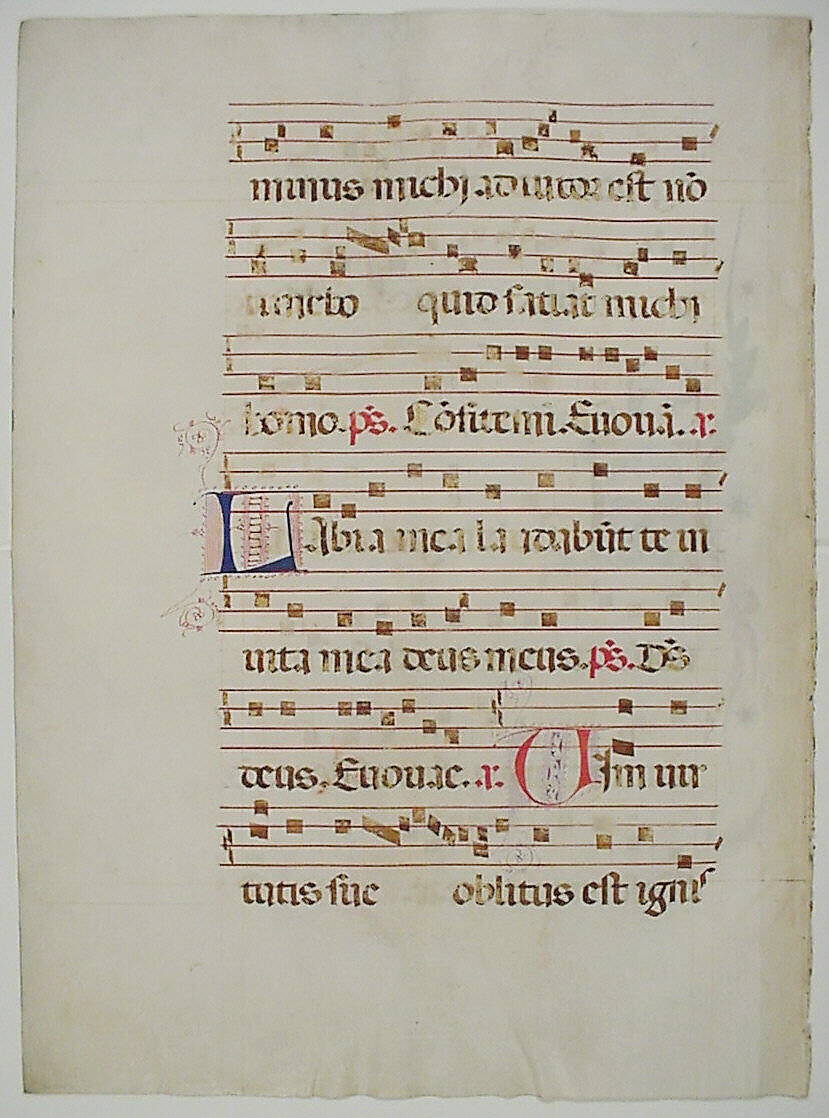 minus michi adiutor est nō
timebo quid faciat michi
homo. ps̄. Cōfitemi. Euouā. a.
Labia mea laudabūt te in
uita mea deus meus. ps̄. Ds̄
deus. Euouae. a. Vim uir
tutis sue oblitus est ignis